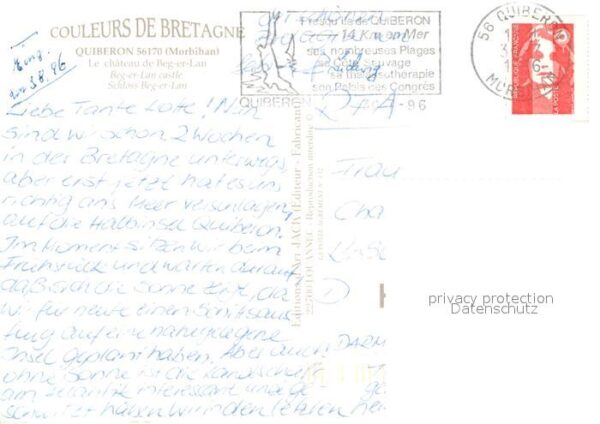 COULEURS DE BRETAGNE
QUIBERON 56170 (Morbihan)
Le château de Beg-er-Lan
Beg-er-Lan castle
Schloss Beg-er-Lan
3.8.96
Liebe Tante Lotte! Nun
sind wir schon 2 Wochen
in der Bretagne unterwegs,
aber erst jetzt hat es uns
richtig ans Meer verschlagen,
auf die Halbinsel Quiberon.
Im Moment sitzen wir beim
Frühstück und warten darauf
daß sich die Sonne zeigt, da
wir für heute einen Schiffsaus
flug auf eine nahegelegene
Insel geplant haben. Aber auch
ohne Sonne ist die Landschaft
am Atlantik interessant und ge
schwitzt haben wir in den letzten
Presqu'île de QUIBERON
14 Km en Mer
ses nombreuses Plages
sa Côte sauvage
sa thalassothérapie
son Palais des Congrès
QUIBERON
-96
56 QUIBERON
Editions d'Art JACK
Editeur - Fabricant
Reproduction interdite
Frau
D
privacy protection
Datenschutz